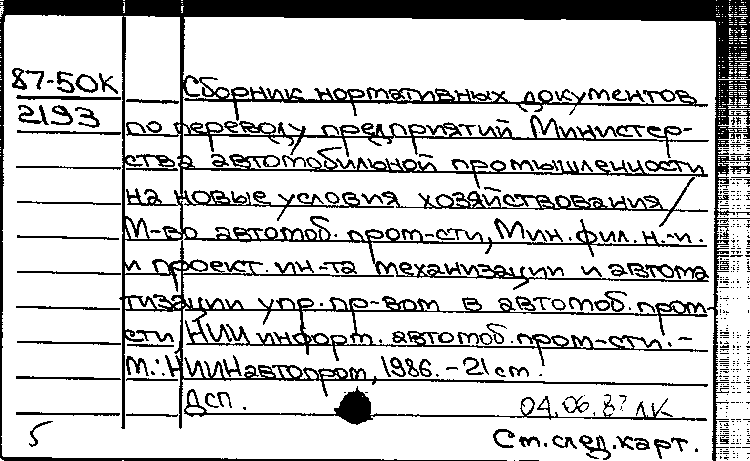 87-50К
2193
Сборник нормативных документов
по переводу предприятий Министер-
ства автомобильной промышленности
на новые условия хозяйствования /
М-во автомоб. пром-сти, Мин. фил. н.-и.
и проект. ин-та механизации и автома
тизации упр. пр-вом в автомоб. пром-
сти, НИИ информ. автомоб. пром-сти. -
М.: НИИНавтопром, 1986. - 21 см.
ДСП.
04.06.87 ЛК
5
См. след. карт.